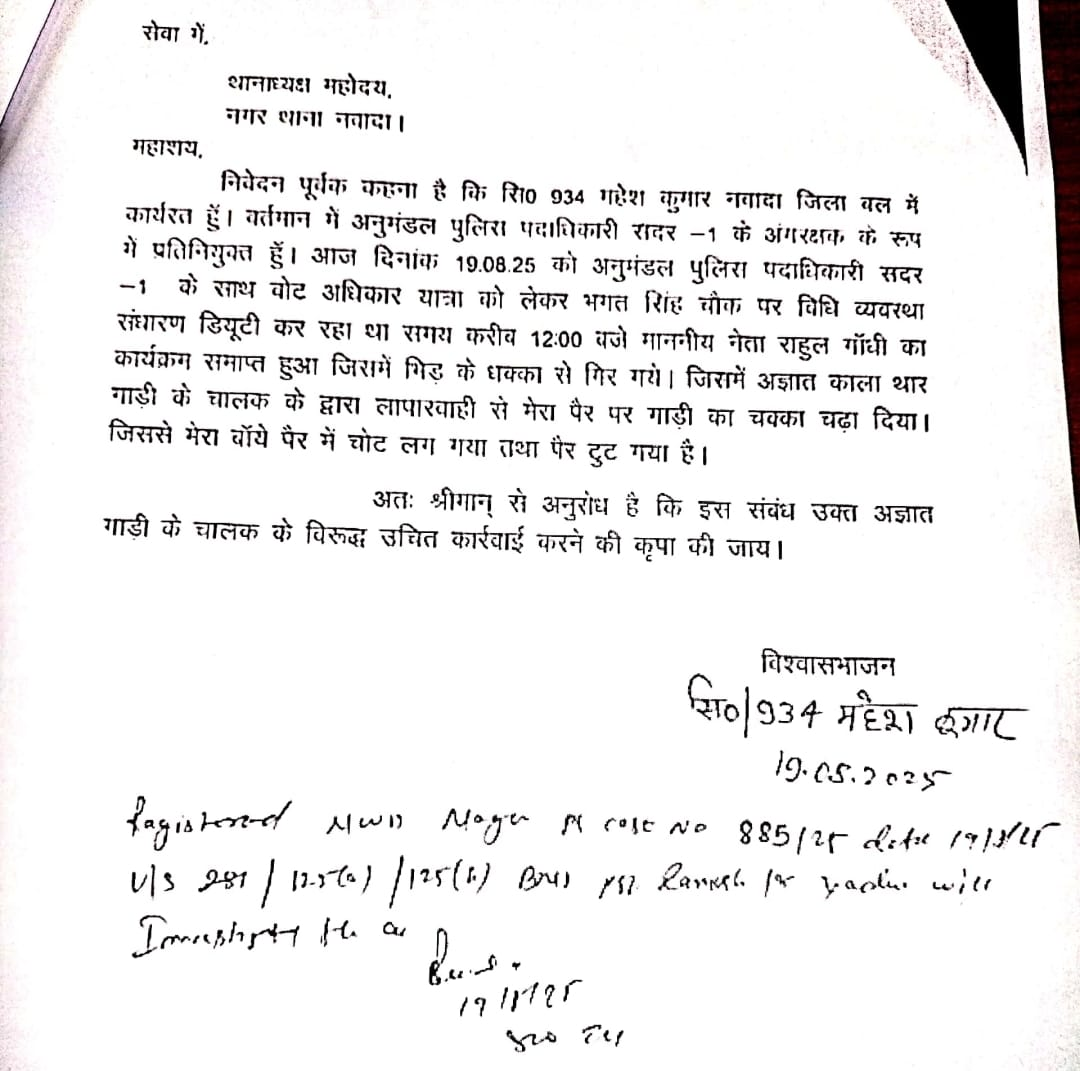 सेवा में,
थानाध्यक्ष महोदय,
नगर थाना नवादा।
महाशय,
निवेदन पूर्वक कहना है कि सि0 934 महेश कुमार नवादा जिला बल में
कार्यरत हूँ। वर्तमान में अनुमंडल पुलिस पदाधिकारी सदर -1 के अंगरक्षक के रूप
में प्रतिनियुक्त हूँ। आज दिनांक 19.08.25 को अनुमंडल पुलिस पदाधिकारी सदर
-1 के साथ वोट अधिकार यात्रा को लेकर भगत सिंह चौक पर विधि व्यवस्था
संधारण डियूटी कर रहा था समय करीब 12:00 बजे माननीय नेता राहुल गाँधी का
कार्यक्रम समाप्त हुआ जिसमें भिड़ के धक्का से गिर गये। जिसमें अज्ञात काला थार
गाड़ी के चालक के द्वारा लापारवाही से मेरा पैर पर गाड़ी का चक्का चढ़ा दिया।
जिससे मेरा बाँये पैर में चोट लग गया तथा पैर टुट गया है।
अतः श्रीमान् से अनुरोध है कि इस संबंध उक्त अज्ञात
गाड़ी के चालक के विरूद्ध उचित कार्रवाई करने की कृपा की जाय।
विश्वासभाजन
सि0/934 महेश कुमार
19.08.2025
Registered NWD Nagar PS case No 885/25 date 19/8/25
U/S 281/125(a)/125(b) BNS PSI Ranjesh Kr will
19/8/25